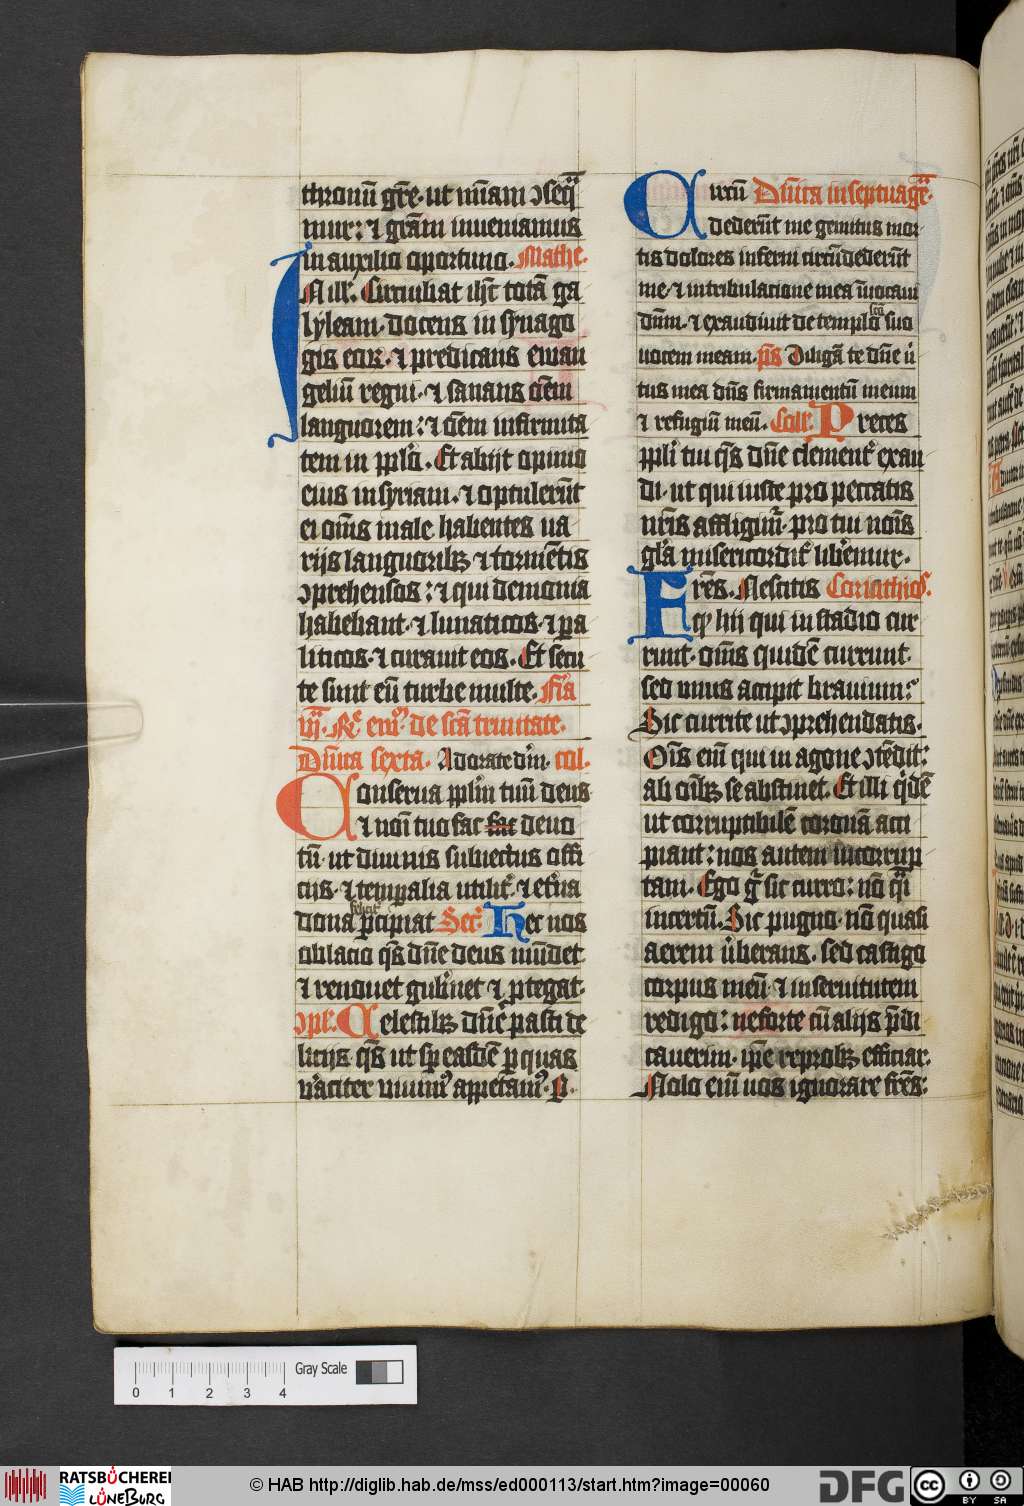 thronū gr̄e · ut mīam ɔseq̄
mur : ⁊ grām inveniamus
in auxilio oportuno . Mathe .
N ill̄ . Circuibat ih̄c totā ga
lyleam · docens in synago
gis eoꝝ · ⁊ predicans ewan
geliū regni · ⁊ sanans ōem
languorem : ⁊ ōem infirmita
tem in pp̄lo . Et abijt opinio
eius in syriam · ⁊ optulerūt
ei om̄s male habentes va
rijs languoribꝫ ⁊ tormētis
ɔprehensos : ⁊ qui demonia
habebant · ⁊ lunaticos · ⁊ pa
liticos · ⁊ curavit eos . Et secu
te sunt eū turbe multe .
de sc̄a trinitate .
Dn̄ica sexta . Adorate dm̄ . col .
Conserva pp̄lm tuū deus
⁊ noī tuo fac fac devo
tū · ut divinis subiectus offi
cijs · ⁊ temporalia utilit̄ · ⁊ et̄na
dona feliciť p̄cipiat Sec̄ . Hec nos
oblacio qs̄ dn̄e deus mūdet
⁊ renovet gub̄net ⁊ ꝓtegat ·
ɔpl̄ . Celestibꝫ dn̄e pasti de
licijs qs̄ ut sp̄ easdē ꝑ quas
v̄aciter vivimꝰ appetamꝰ . P .
Circū Dn̄ica in septuaḡe .
dederūt me gemitus mor
tis dolores inferni circūdederūt
me · ⁊ in tribulacione mea īvocavi
dūm · ⁊ exaudivit de templo sc̄o suo
vocem meam . ps̄ Diligā te dn̄e v̄
tus mea dn̄s firmamentū meum
⁊ refugiū meū . Coll̄ . Preces
pp̄li tui qs̄ dn̄e clement̄ exau
di · ut qui iuste pro peccatis
nr̄is affligim̄ · pro tui noīs
gl̄a misericordit̄ lib̄emur .
Fr̄es . Nescitis Corinthioꝝ .
qꝫ hij qui in stadio cur
runt · om̄s quidē currunt ·
sed unus accipit bravium :
Sic currite ut ɔprehendatis .
Om̄s em̄ qui in agone ɔtēdit :
ab oībꝫ se abstinet . Et illi q̄dē
ut corruptibilē coronā acci
piant : nos autem incorrup
tam . Ego g° sic curro : nō q̄i
incertū . Sic pugno · nō quasi
aerem v̄berans · sed castigo
corpus meū ⁊ in servitutem
redigo : ne forte cū alijs p̄di
caverim · ip̄e reprobꝫ efficiar .
Nolo em̄ vos ignorare fr̄es :
0 1 2 3 4 Gray Scale
RATSBÜCHEREI LÜNEBURG
© HAB http://diglib.hab.de/mss/ed000113/start.htm?image=00060
DFG
cc BY SA